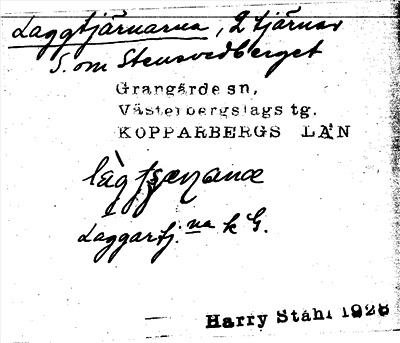 Laggtjärnarna, 2 tjärnar
S. om Stensvedberget
Grangärde sn,
Västerbergslags tg.
KOPPARBERGS LÄN
Laggartj.na k G.
Harry Ståhl 1928